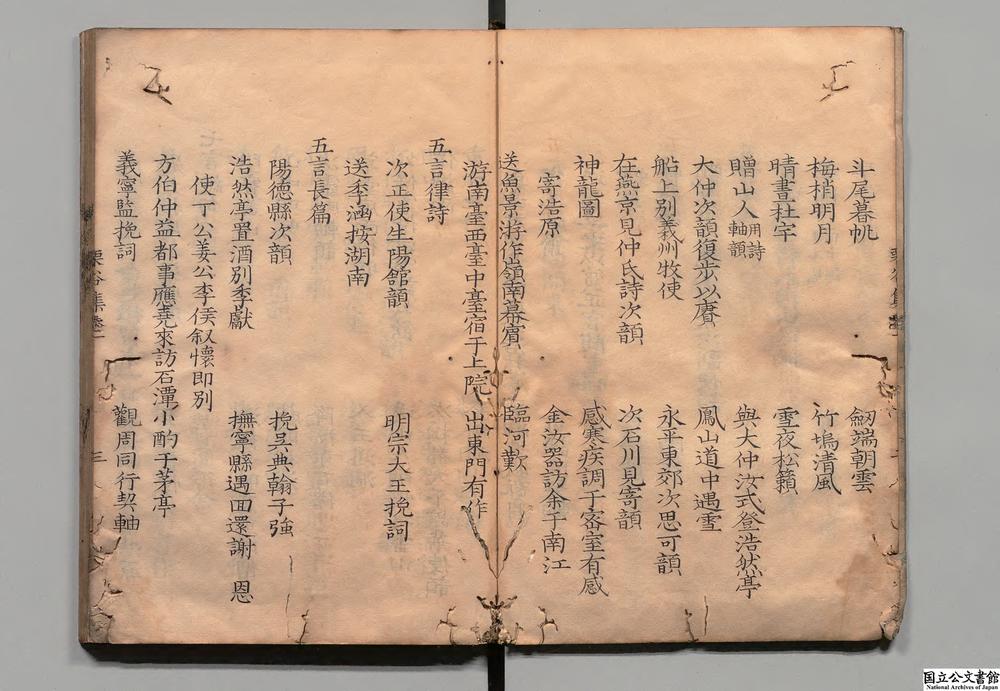 斗尾暮帆 劒端朝雲
梅梢明月 竹塢清風
晴晝杜宇 雪夜松籟
贈山人用詩軸韻 與大仲汝式登浩然亭
大仲次韻復步以賡 鳳山道中遇雪
船上別義州牧使 永平東郊次思可韻
在燕京見仲氏詩次韻 次石川見寄韻
神龍圖 感寒疾調于密室有感
寄浩原 金汝器訪余于南江
送魚景游作嶺南幕賓 臨河歎
游南臺西臺中臺宿于上院 出東門有作
五言律詩
次正使生陽館韻 明宗大王挽詞
送季涵按湖南
五言長篇
陽德縣次韻 挽吳典翰子強
浩然亭置酒別季獻 撫寧縣遇回還謝 恩
使丁公姜公李侯叙懷即別
方伯仲益都事應堯來訪石潭小酌于茅亭
義寧監挽詞 觀周同行契軸
栗谷集 三
国立公文書館
National Archives of Japan